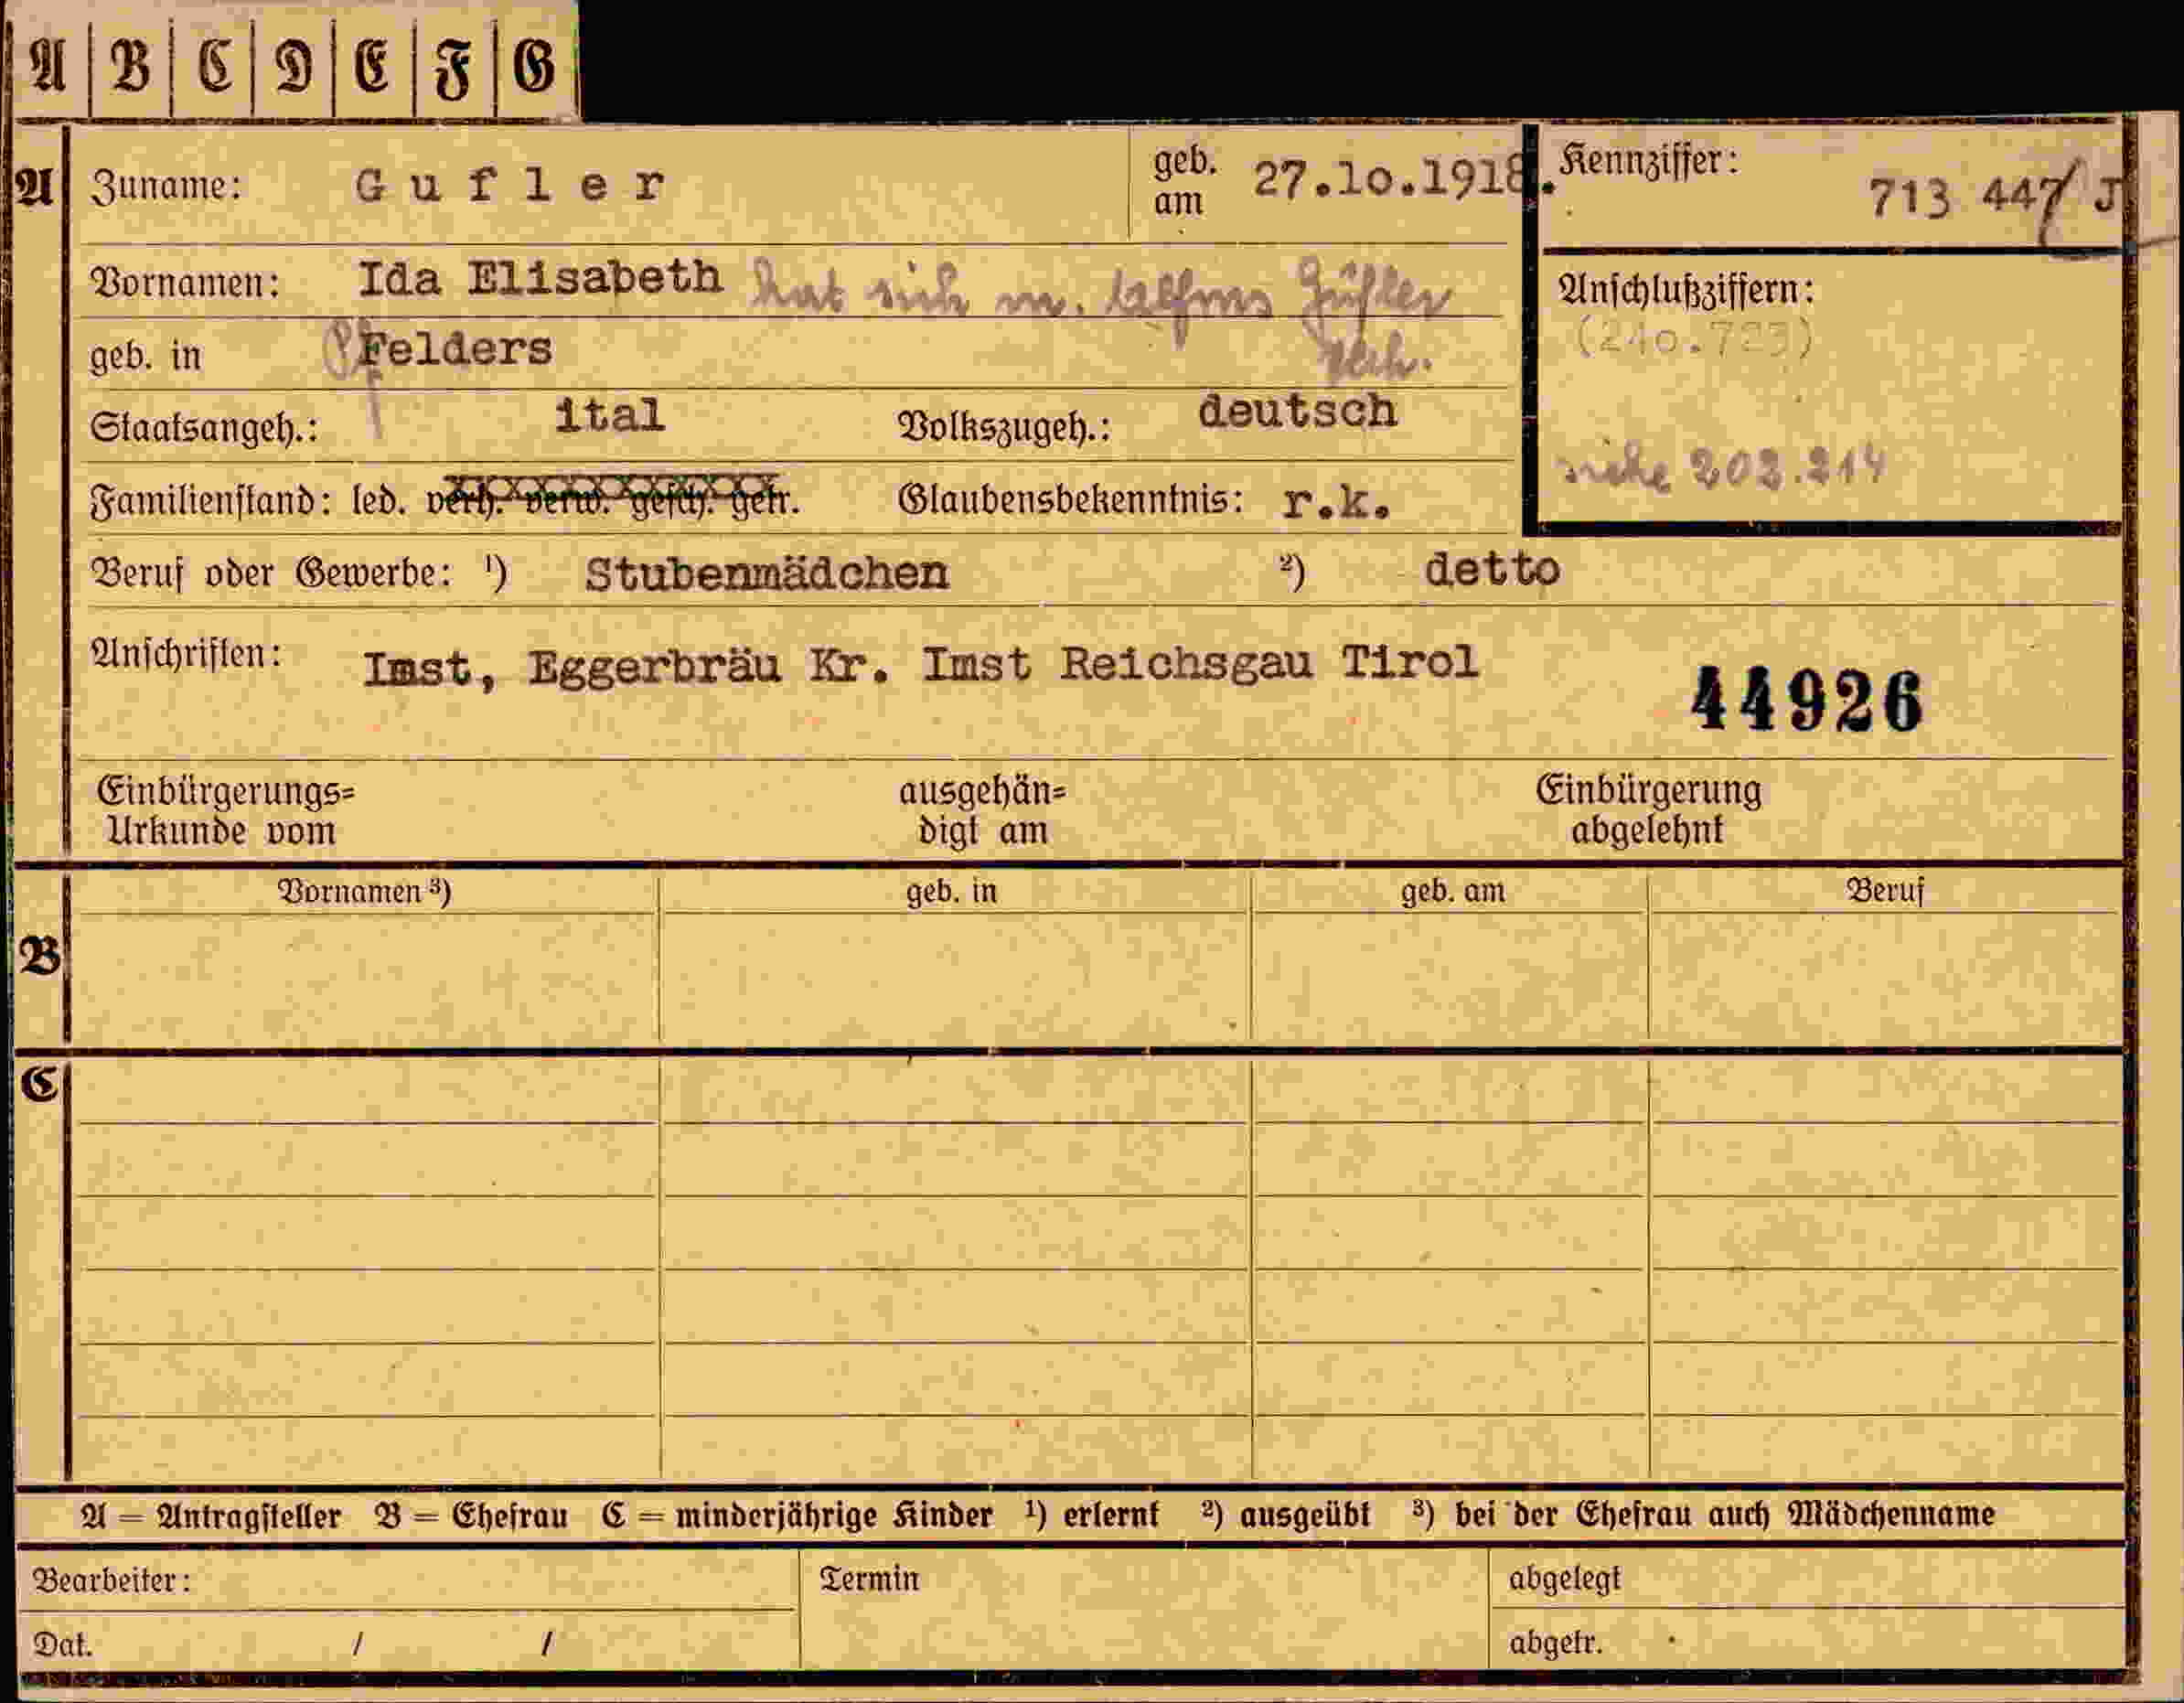 A B C D E F G
A Zuname: Gufler geb. am 27.10.1918. Kennziffer: 713 447/J
Vornamen: Ida Elisabeth hat sich m. Gufler
verh.
geb. in Pfelders Anschlußziffern:
(240.723)
Staatsangeh.: ital Volkszugeh.: deutsch
siehe 202.214
Familienstand: led. verh. verw. gesch. getr. Glaubensbekenntnis: r.k.
Beruf oder Gewerbe: ¹) Stubenmädchen ²) detto
Anschriften: Imst, Eggerbräu Kr. Imst Reichsgau Tirol
44926
Einbürgerungs= ausgehän= Einbürgerung
Urkunde vom digt am abgelehnt
Vornamen ³) geb. in geb. am Beruf
B
C
A = Antragsteller B = Ehefrau C = minderjährige Kinder ¹) erlernt ²) ausgeübt ³) bei der Ehefrau auch Mädchenname
Bearbeiter: Termin abgelegt
Dat. / / abgetr.